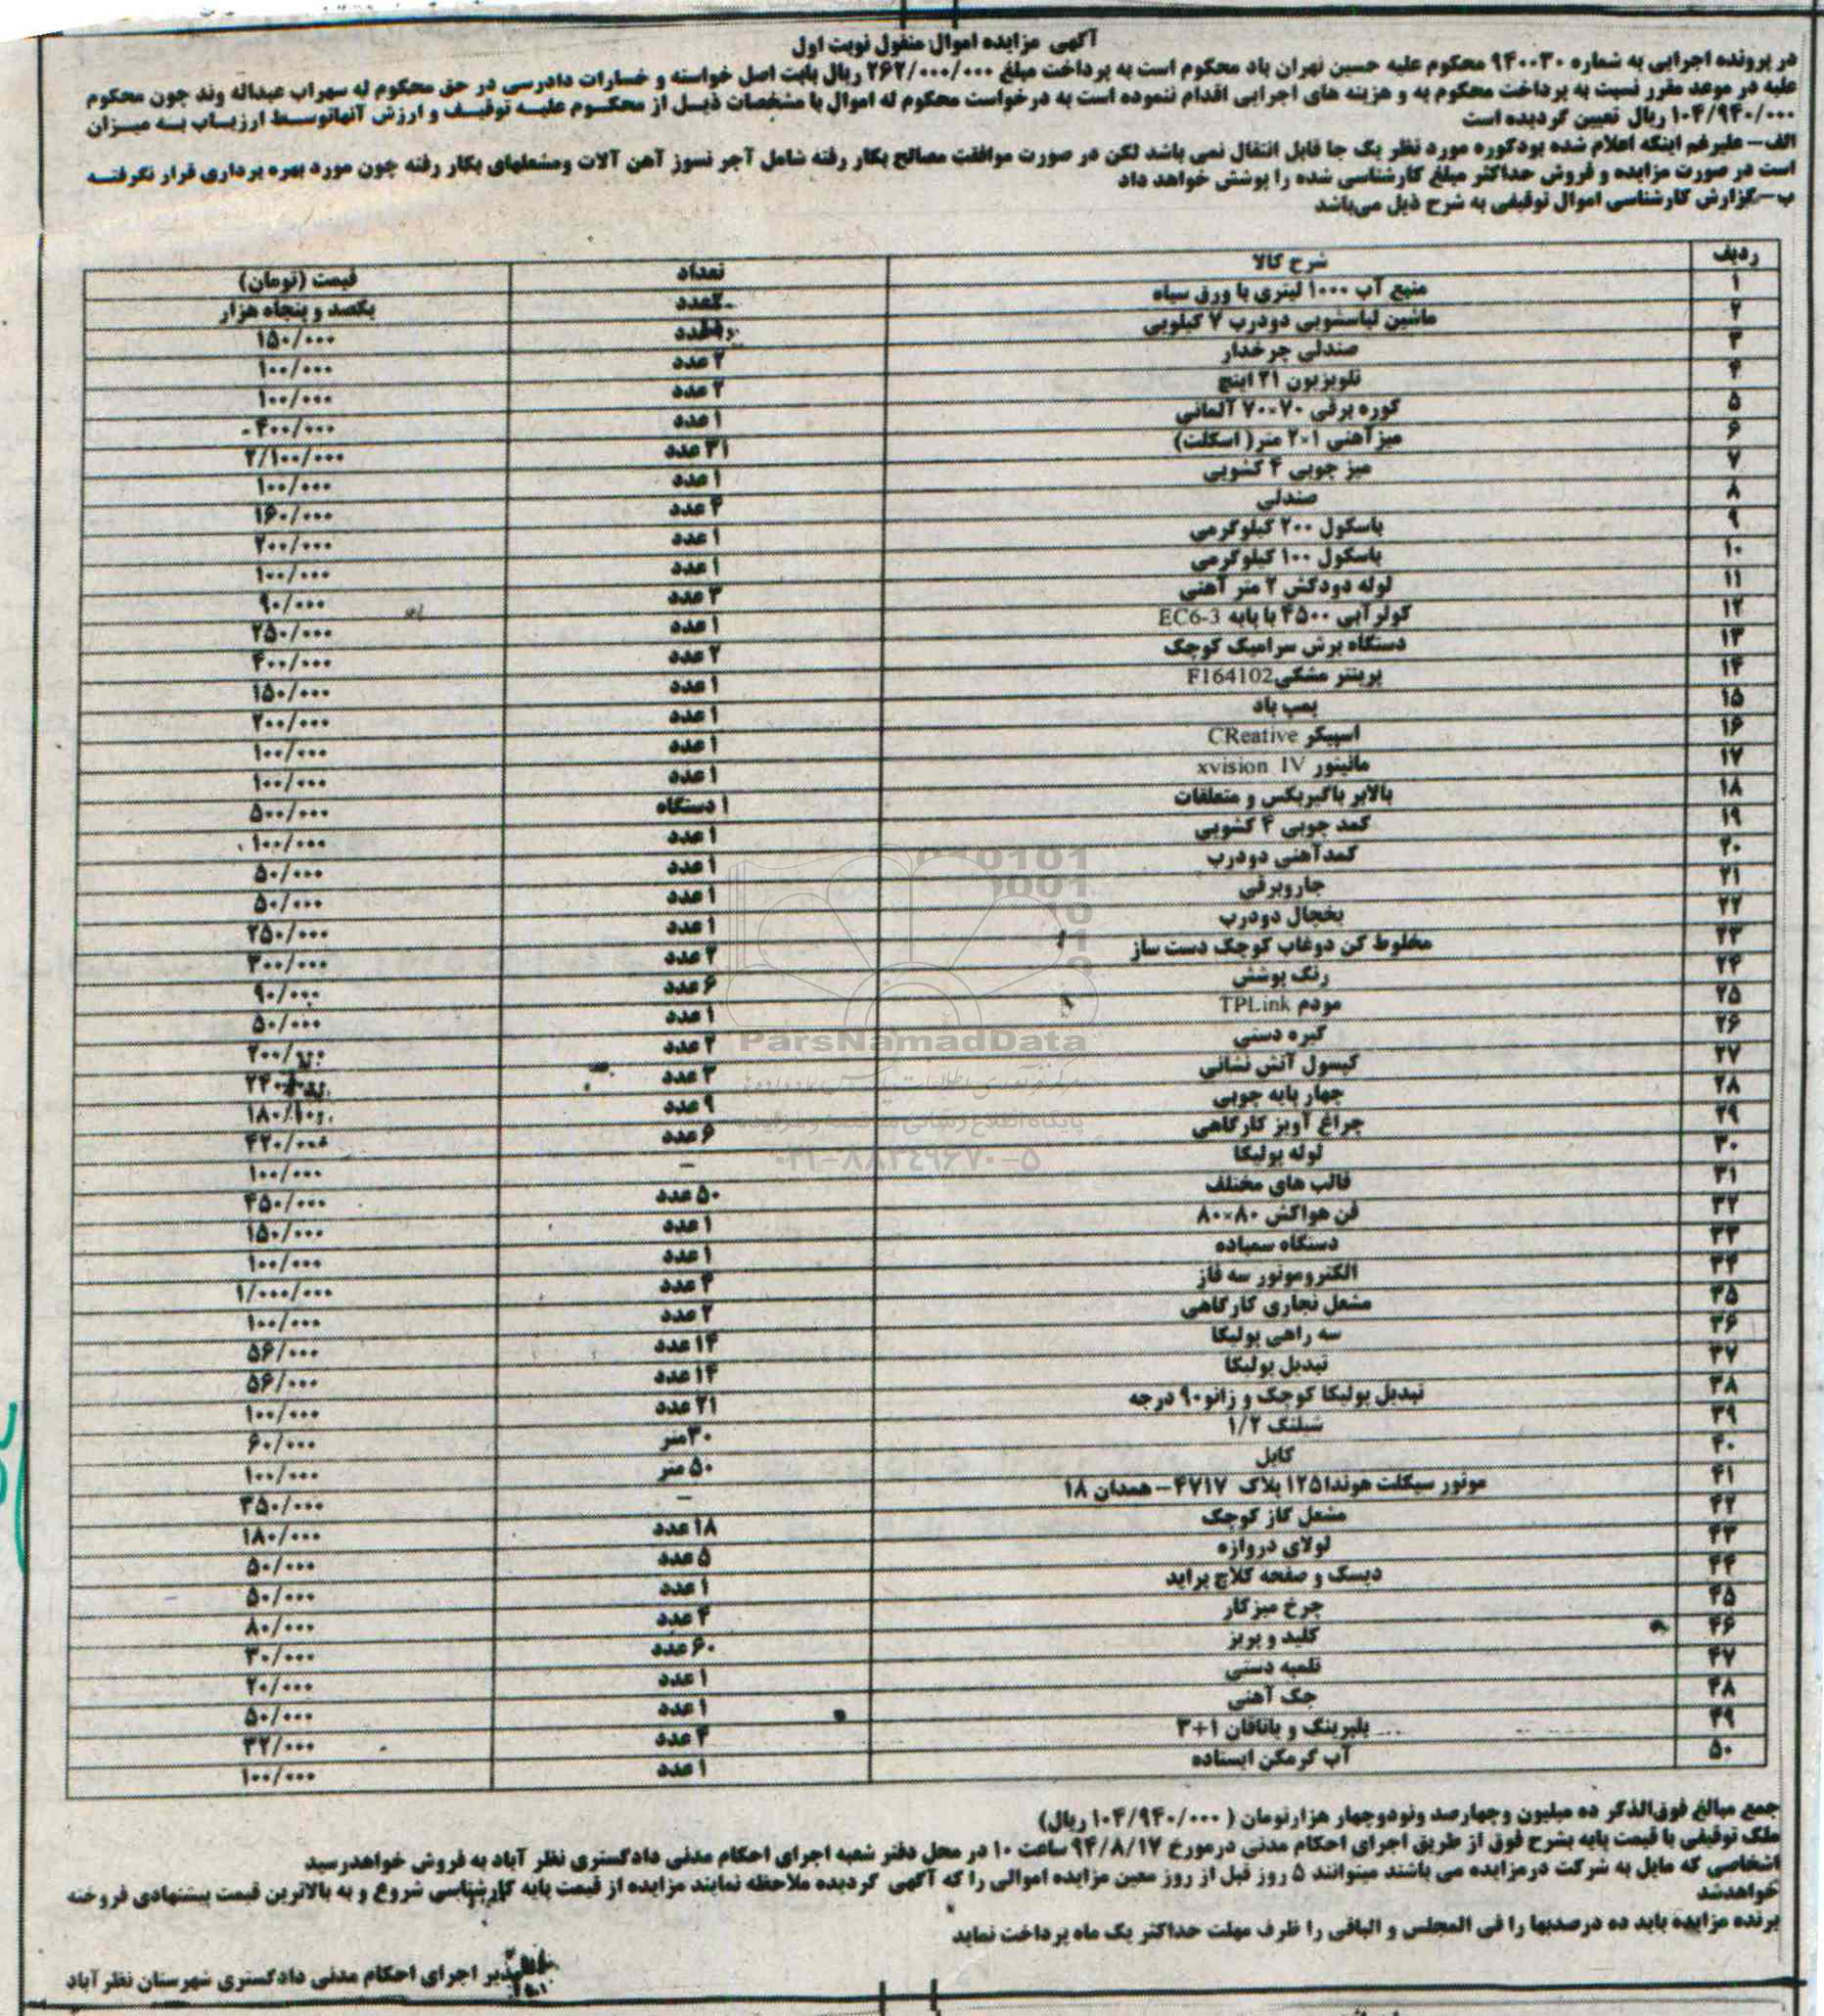 آگهی مزایده اموال منقول نوبت اول
در پرونده اجرایی به شماره ۹۴۰۰۳۰ محکوم علیه حسین تهران یاد محکوم است به پرداخت مبلغ ۲۶۲/۰۰۰/۰۰۰ ریال بابت اصل خواسته و خسارات دادرسی در حق محکوم له سهراب عبداله وند چون محکوم
علیه در موعد مقرر نسبت به پرداخت محکوم به و هزینه های اجرایی اقدام ننموده است به درخواست محکوم له اموال با مشخصات ذیل از محکوم علیه توقیف و ارزش آنهاتوسط ارزیاب به میزان
۱۰۴/۹۴۰/۰۰۰ ریال تعیین گردیده است
الف- علیرغم اینکه اعلام شده بودکوره مورد نظر یک جا قابل انتقال نمی باشد لکن در صورت موافقت مصالح بکار رفته شامل آجر نسوز آهن آلات ومشعلهای بکار رفته چون مورد بهره برداری قرار نگرفته
است در صورت مزایده و فروش حداکثر مبلغ کارشناسی شده را پوشش خواهد داد
ب-گزارش کارشناسی اموال توقیفی به شرح ذیل می‌باشد
ردیف شرح کالا تعداد قیمت (تومان)
۱ منبع آب ۱۰۰۰ لیتری با ورق سیاه ۲عدد یکصد و پنجاه هزار
۲ ماشین لباسشویی دودرب ۷ کیلویی عدد ۱۵۰/۰۰۰
۳ صندلی چرخدار ۲ عدد ۱۰۰/۰۰۰
۴ تلویزیون ۲۱ اینچ ۲ عدد ۱۰۰/۰۰۰
۵ کوره برقی ۷۰×۷۰ آلمانی ۱ عدد ۴۰۰/۰۰۰
۶ میزآهنی ۱×۲ متر( اسکلت) ۲۱ عدد ۲/۱۰۰/۰۰۰
۷ میز چوبی ۴ کشویی ۱ عدد ۱۰۰/۰۰۰
۸ صندلی ۴ عدد ۱۶۰/۰۰۰
۹ باسکول ۲۰۰ کیلوگرمی ۱ عدد ۲۰۰/۰۰۰
۱۰ باسکول ۱۰۰ کیلوگرمی ۱ عدد ۱۰۰/۰۰۰
۱۱ لوله دودکش ۲ متر آهنی ۳ عدد ۹۰/۰۰۰
۱۲ کولرآبی ۴۵۰۰ با پایه EC6-3 ۱ عدد ۲۵۰/۰۰۰
۱۳ دستگاه برش سرامیک کوچک ۲ عدد ۴۰۰/۰۰۰
۱۴ پرینتر مشکی F164102 ۱ عدد ۱۵۰/۰۰۰
۱۵ پمپ باد ۱ عدد ۲۰۰/۰۰۰
۱۶ اسپیکر CReative ۱ عدد ۱۰۰/۰۰۰
۱۷ مانیتور xvision IV ۱ عدد ۱۰۰/۰۰۰
۱۸ بالابر باگیربکس و متعلقات ۱ دستگاه ۵۰۰/۰۰۰
۱۹ کمد چوبی ۴ کشویی ۱ عدد ۱۰۰/۰۰۰
۲۰ کمدآهنی دودرب ۱ عدد ۵۰/۰۰۰
۲۱ جاروبرقی ۱ عدد ۵۰/۰۰۰
۲۲ یخچال دودرب ۱ عدد ۲۵۰/۰۰۰
۲۳ مخلوط کن دوغاب کوچک دست ساز ۲ عدد ۳۰۰/۰۰۰
۲۴ رنگ پوشش ۶ عدد ۹۰/۰۰۰
۲۵ مودم TPLink ۱ عدد ۵۰/۰۰۰
۲۶ گیره دستی ۲ عدد ۲۰۰/۰۰۰
۲۷ کپسول آتش نشانی ۳ عدد
۲۸ چهار پایه چوبی ۹ عدد ۱۸۰/۰۰۰
۲۹ چراغ آویز کارگاهی ۶ عدد ۴۲۰/۰۰۰
۳۰ لوله پولیکا – ۱۰۰/۰۰۰
۳۱ قالب های مختلف ۵۰ عدد ۴۵۰/۰۰۰
۳۲ فن هواکش ۸۰×۸۰ ۱ عدد ۱۵۰/۰۰۰
۳۳ دستگاه سمباده ۱ عدد ۱۰۰/۰۰۰
۳۴ الکتروموتور سه فاز ۴ عدد ۱/۰۰۰/۰۰۰
۳۵ مشعل نجاری کارگاهی ۲ عدد ۱۰۰/۰۰۰
۳۶ سه راهی پولیکا ۱۴ عدد ۵۶/۰۰۰
۳۷ تبدیل پولیکا ۱۴ عدد ۵۶/۰۰۰
۳۸ تبدیل پولیکا کوچک و زانو ۹۰ درجه ۲۱ عدد ۱۰۰/۰۰۰
۳۹ شیلنگ ۱/۲ ۳۰ متر ۶۰/۰۰۰
۴۰ کابل ۵۰ متر ۱۰۰/۰۰۰
۴۱ موتور سیکلت هوندا۱۲۵ پلاک ۴۷۱۷ - همدان ۱۸ – ۳۵۰/۰۰۰
۴۲ مشعل گاز کوچک ۱۸ عدد ۱۸۰/۰۰۰
۴۳ لولای دروازه ۵ عدد ۵۰/۰۰۰
۴۴ دیسک و صفحه کلاچ پراید ۱ عدد ۵۰/۰۰۰
۴۵ چرخ میزکار ۴ عدد ۸۰/۰۰۰
۴۶ کلید و پریز ۶۰ عدد ۳۰/۰۰۰
۴۷ تلمبه دستی ۱ عدد ۲۰/۰۰۰
۴۸ جک آهنی ۱ عدد ۵۰/۰۰۰
۴۹ بلبرینگ و یاتاقان ۱+۳ ۴ عدد ۳۲/۰۰۰
۵۰ آب گرمکن ایستاده ۱ عدد ۱۰۰/۰۰۰
جمع مبالغ فوق‌الذکر ده میلیون وچهارصد ونودوچهار هزارتومان ( ۱۰۴/۹۴۰/۰۰۰ ریال)
ملک توقیفی با قیمت پایه بشرح فوق از طریق اجرای احکام مدنی درمورخ ۹۴/۸/۱۷ ساعت ۱۰ در محل دفتر شعبه اجرای احکام مدنی دادگستری نظر آباد به فروش خواهدرسید
اشخاصی که مایل به شرکت درمزایده می باشند میتوانند ۵ روز قبل از روز معین مزایده اموالی را که آگهی گردیده ملاحظه نمایند مزایده از قیمت پایه کارشناسی شروع و به بالاترین قیمت پیشنهادی فروخته
خواهدشد
برنده مزایده باید ده درصدبها را فی المجلس و الباقی را ظرف مهلت حداکثر یک ماه پرداخت نماید
مدیر اجرای احکام مدنی دادگستری شهرستان نظر آباد
ParsNamadData
۰۲۱-۸۸۳۴۹۶۷۰-۵